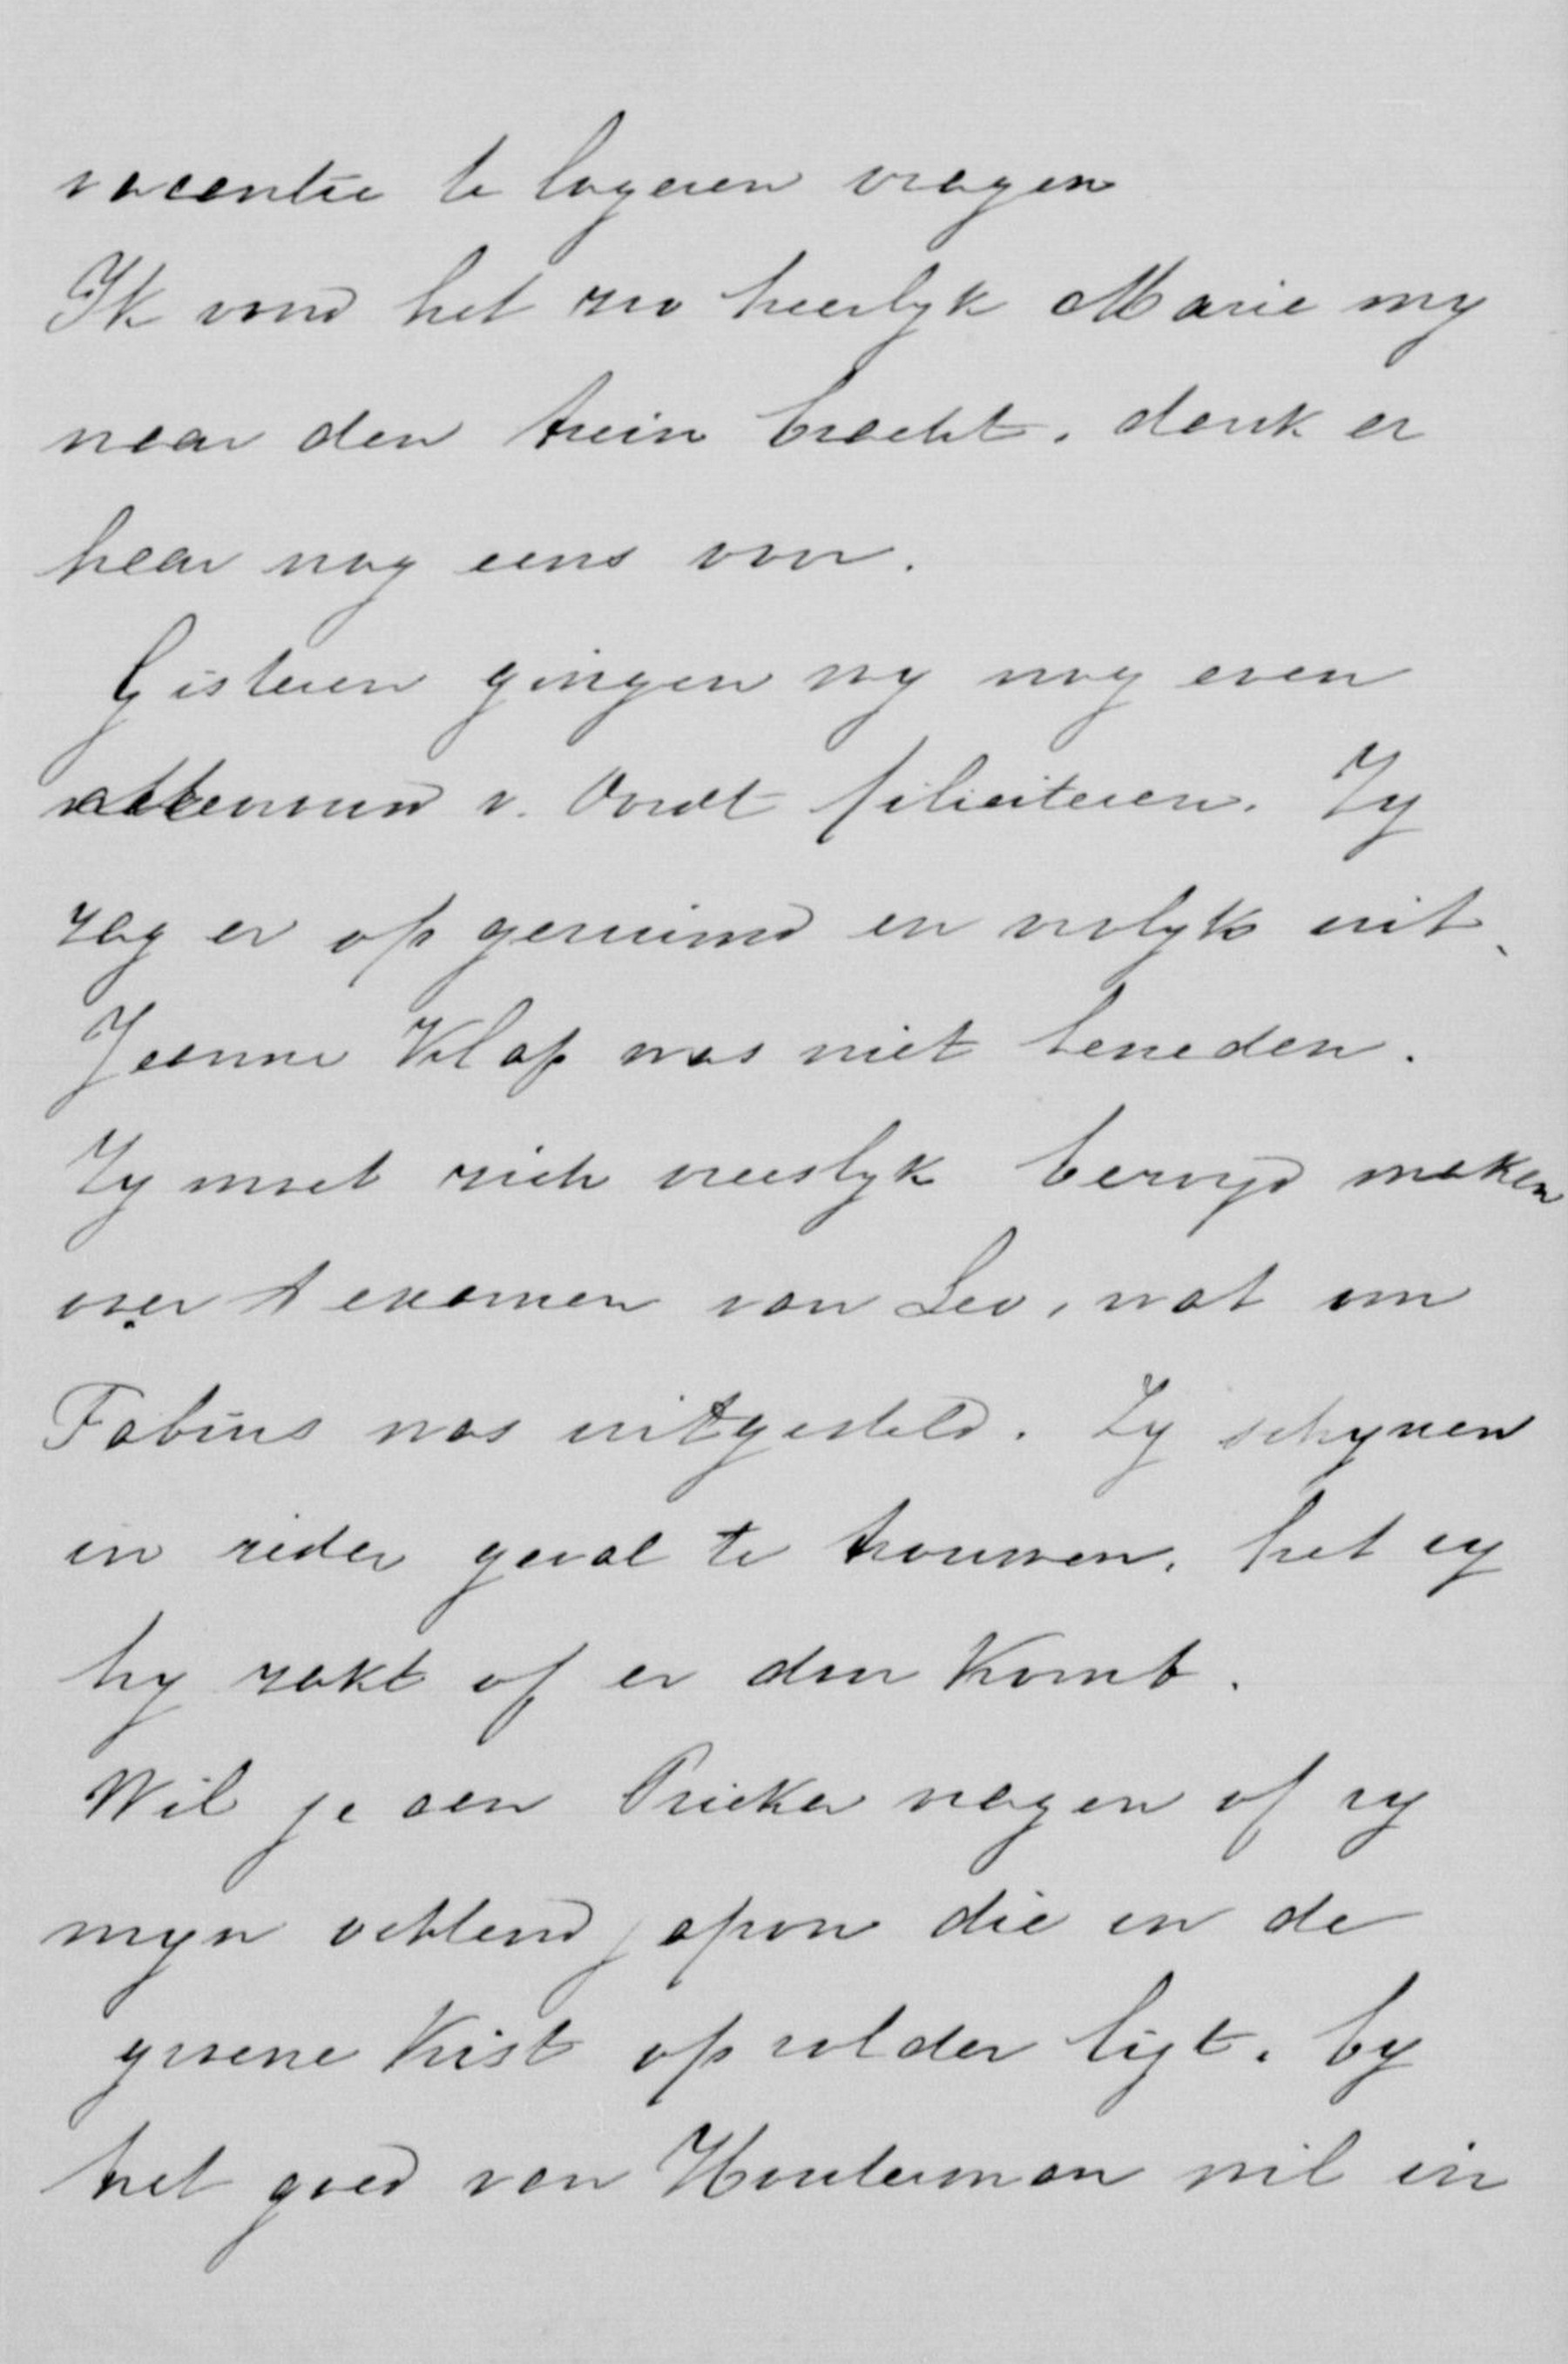 vacantie te logeren vragen
Ik vond het zoo heerlyk Marie my
naar den trein bracht, dank er
haar nog eens voor.
Gisteren gingen wy nog even
v. Oordt feliciteren. Zy
zag er opgeruimd en vrolyk uit.
Jeanne Klap was niet beneden.
Zy moet zich vreeslyk bezorgd maken
over 't examen van Leo, wat om
Fabius was uitgesteld. Zy schynen
in ieder geval te trouwen, het zy
hy zakt of er door komt.
Wil je aan vragen of zy
myn ochtend japon die in de
groene Kist op zolder ligt, by
het goed van Houterman wil in